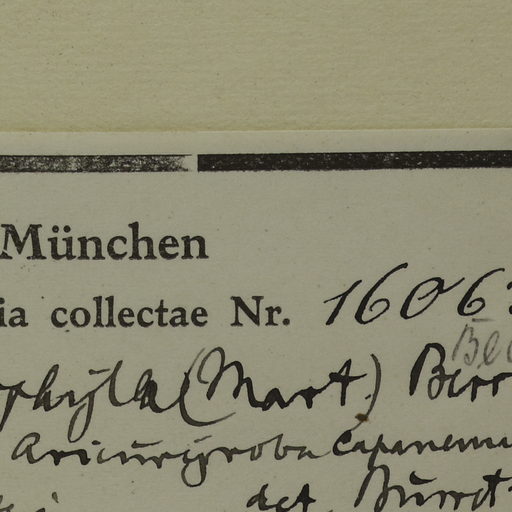 München
ia collectae Nr. 1606
phylla (Mart.) Burr
Bec
Aricuriroba Capanema
det. Burret